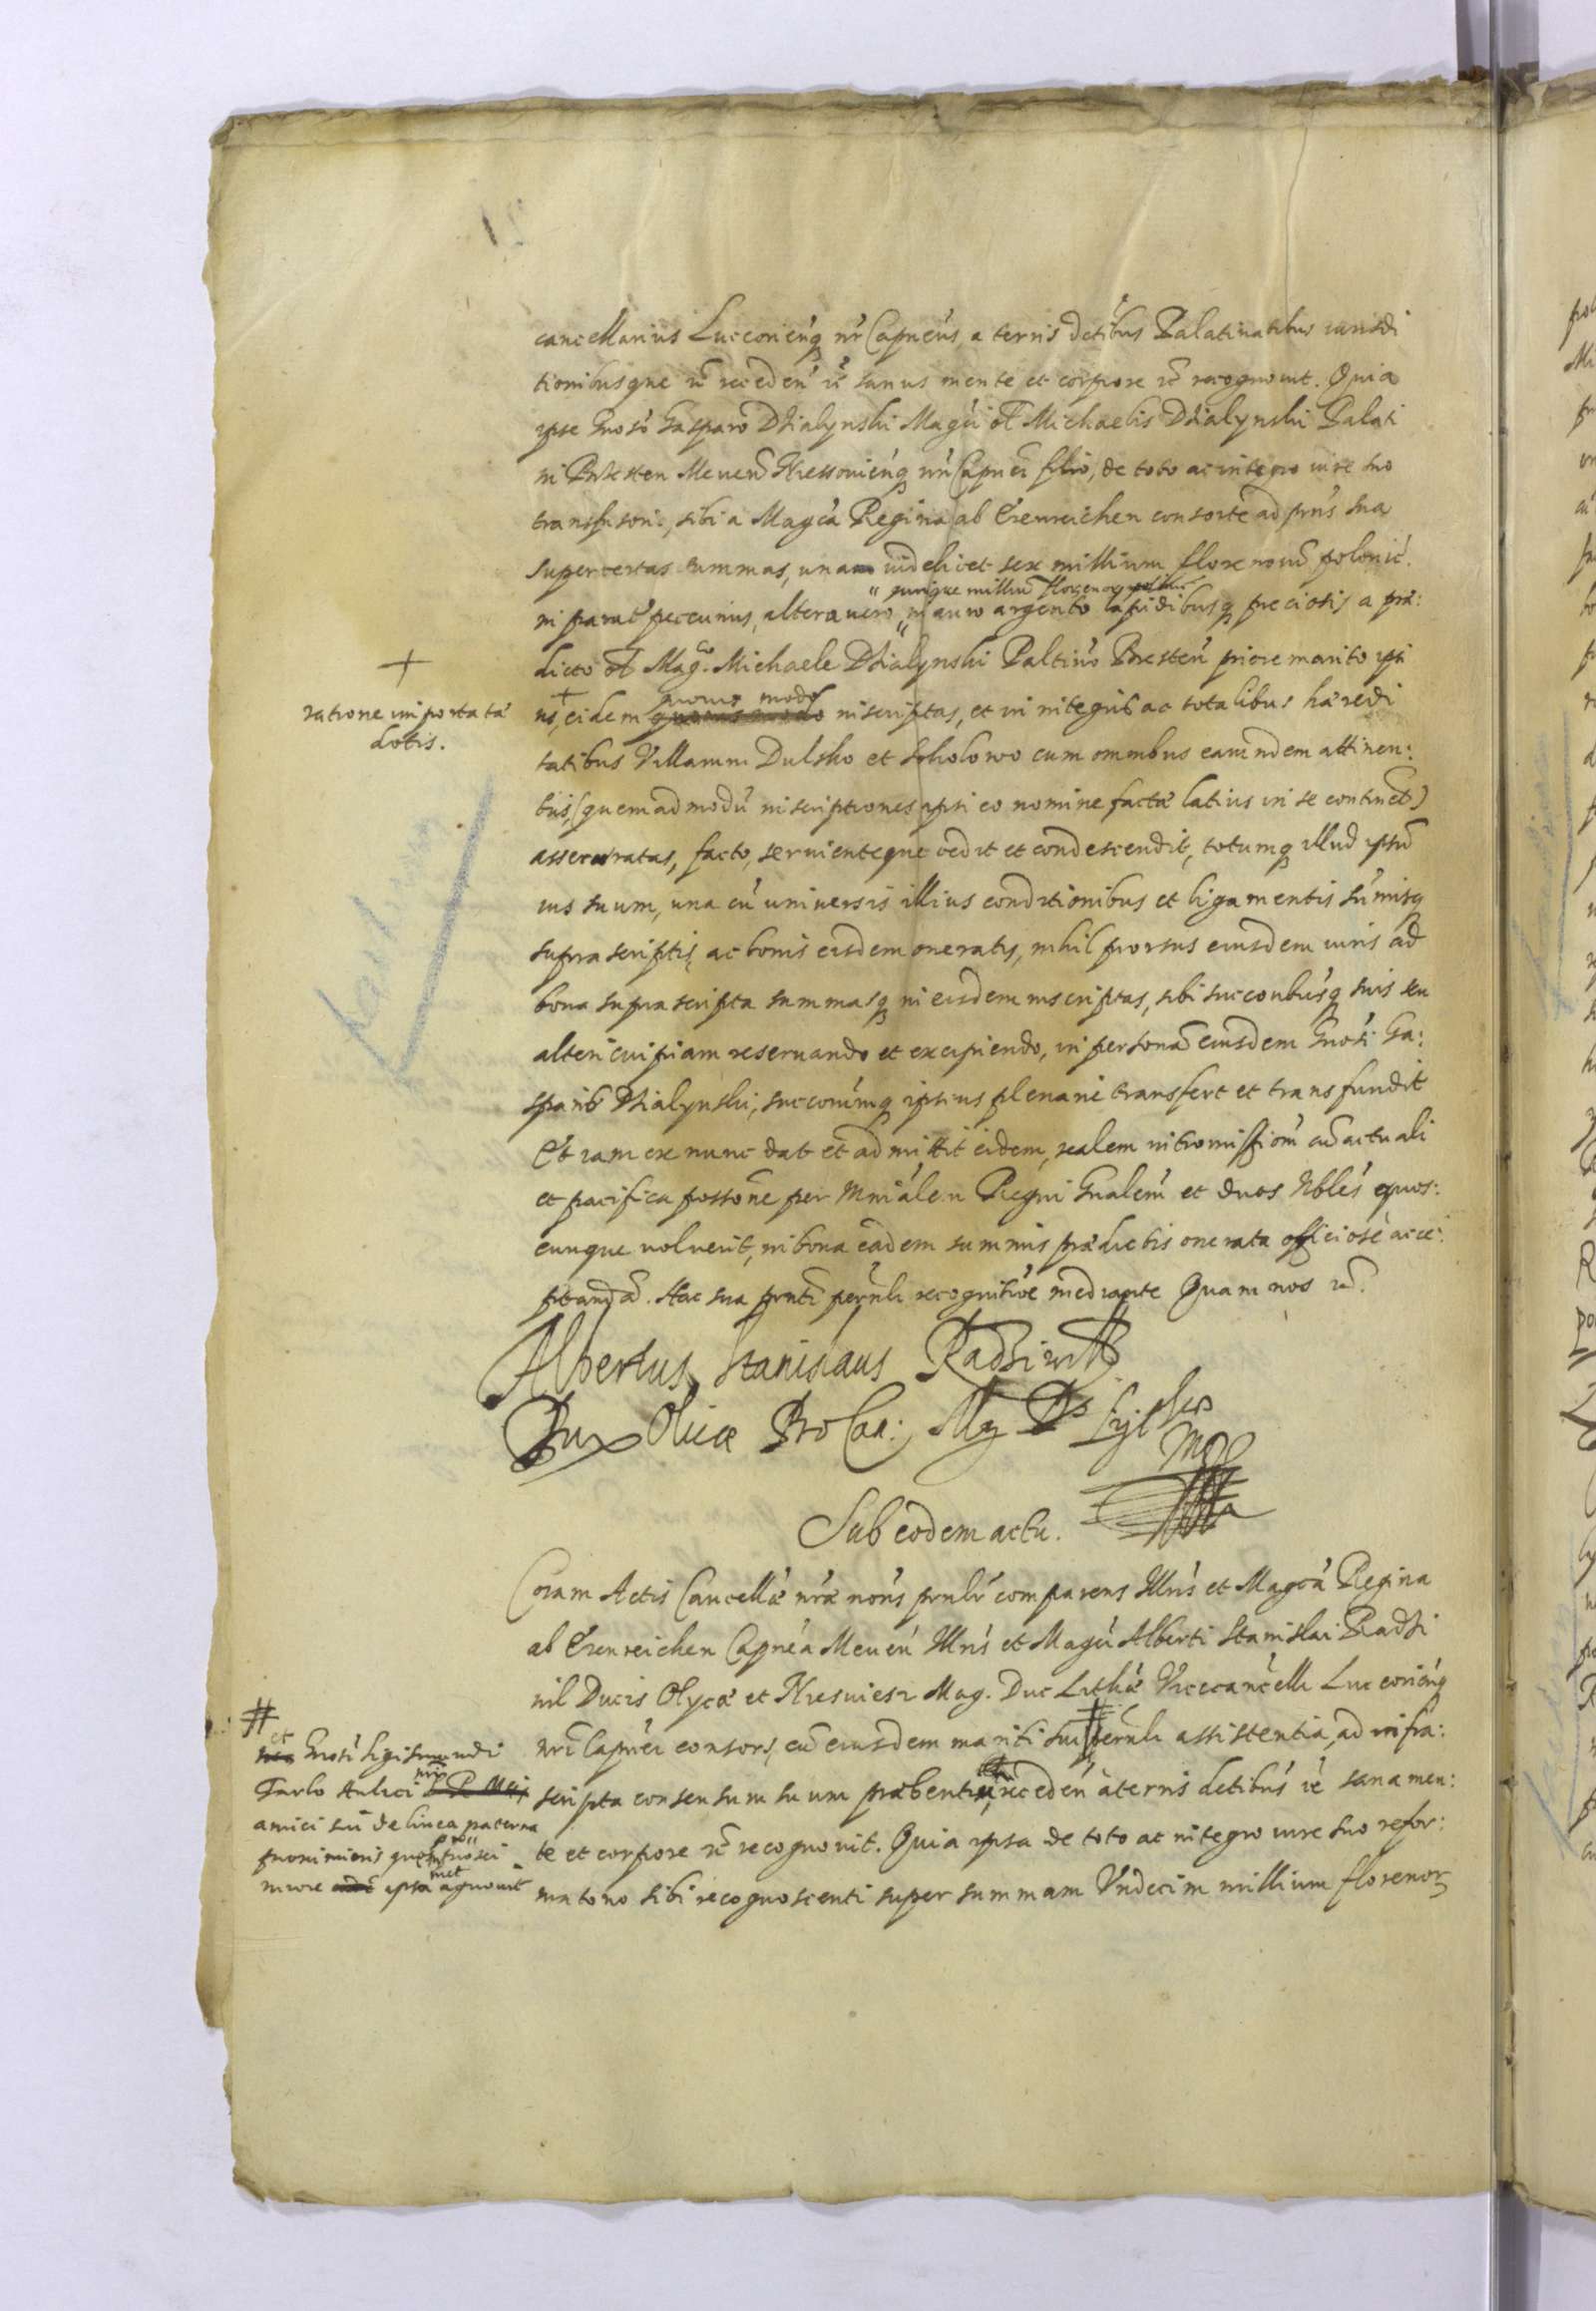 cancellarius Lucconieñq nr̃ Capneus, a terris dctibus Palatinatibus iurisdi
tionibusque rc̃ receden̄ rc̃ sanus mente et corpore rc̃ recognovit. Quia
ipse Gnoso Gasparo Dzialynski Magci Michaelis Dzialynski Palati
ni Brzesten Meven̄ Nressovieñq nri Capnei filio, de toto ac integro iure suo
transfusorio, sibi a Magca Regina ab Eisenreichen consorte ad prns sua
super certas summas, unam videlicet sex millium florenoru polonic.
quinque milliu florenor
in parat pecuniis, altera vero, in auro argento lapidibusq preciosis a præ:
dicto Magco. Michaele Dzialynski Paltino Bresten̄ priore marito ipsi
+
ratione importatæ
dotis.
us, eidem quovis modo inscriptas, et in integris ac totalibus hæredi
tatibus Villarum Dulsko et Sokolowo cum omnibus earundem attinen:
tiis, (quemadmodu inscriptiones ipsi eo nomine factæ latius in se continet)
assecuratas, facto, servienteque cedit et condescendit, totumq illud ipsu
ius suum, una cu universis illius conditionibus et ligamentis sumisq
suprascriptis, ac bonis eisdem oneratis, nihil prorsus eiusdem iuris ad
bona suprascripta summasq in eisdem inscriptas, sibi succoribusq suis seu
alteri cuipiam reservando et excipiendo, in persona eiusdem Gnosi Ga:
sparis Dzialynski, succorumq ipsius plenarie transfert et transfundit
Et iam ex nunc dat et admittit eidem, realem intromissiom cu actuali
et pacifica possone per Mniãlem Regni Gnalem et duos Nbles quos:
cunque voluerit, in bona eadem summis prædictis onerata officiose acce:
ptandã. Hac sua prnti pernli recognitioe mediante Quam nos rc̃.
Albertus Stanislaus Radziwil
Dux Olicæ ProCan: Mg Ds
Sub eodem actu.
Coram Actis Cancellæ nræ nons prnlr comparens Illris et Magca Regina
ab Eisenreichen Capnea Meven̄ Illris et Magci Alberti Stanislai Radzi
vil Ducis Olycæ et Niesviesz Mag. Duc Lithæ Vicecancelli Lucconieñq
nri Capnei consors, cu eiusdem mariti sui # pernli assistentia, ad infra:
scripta consensum suum præbentis, receden̄ a terris dctibus rc̃ sana men:
te et corpore rc̃ recognovit. Quia ipsa de toto ac integro iure suo refor:
matorio sibi recognoscenti super summam Undecim millium florenor
#
et
Gnosi Sigismundi
Tarlo Aulici nri
amici sui de linea paterna
proximioris quem pro tuosci
in iure ipsamet agnovit